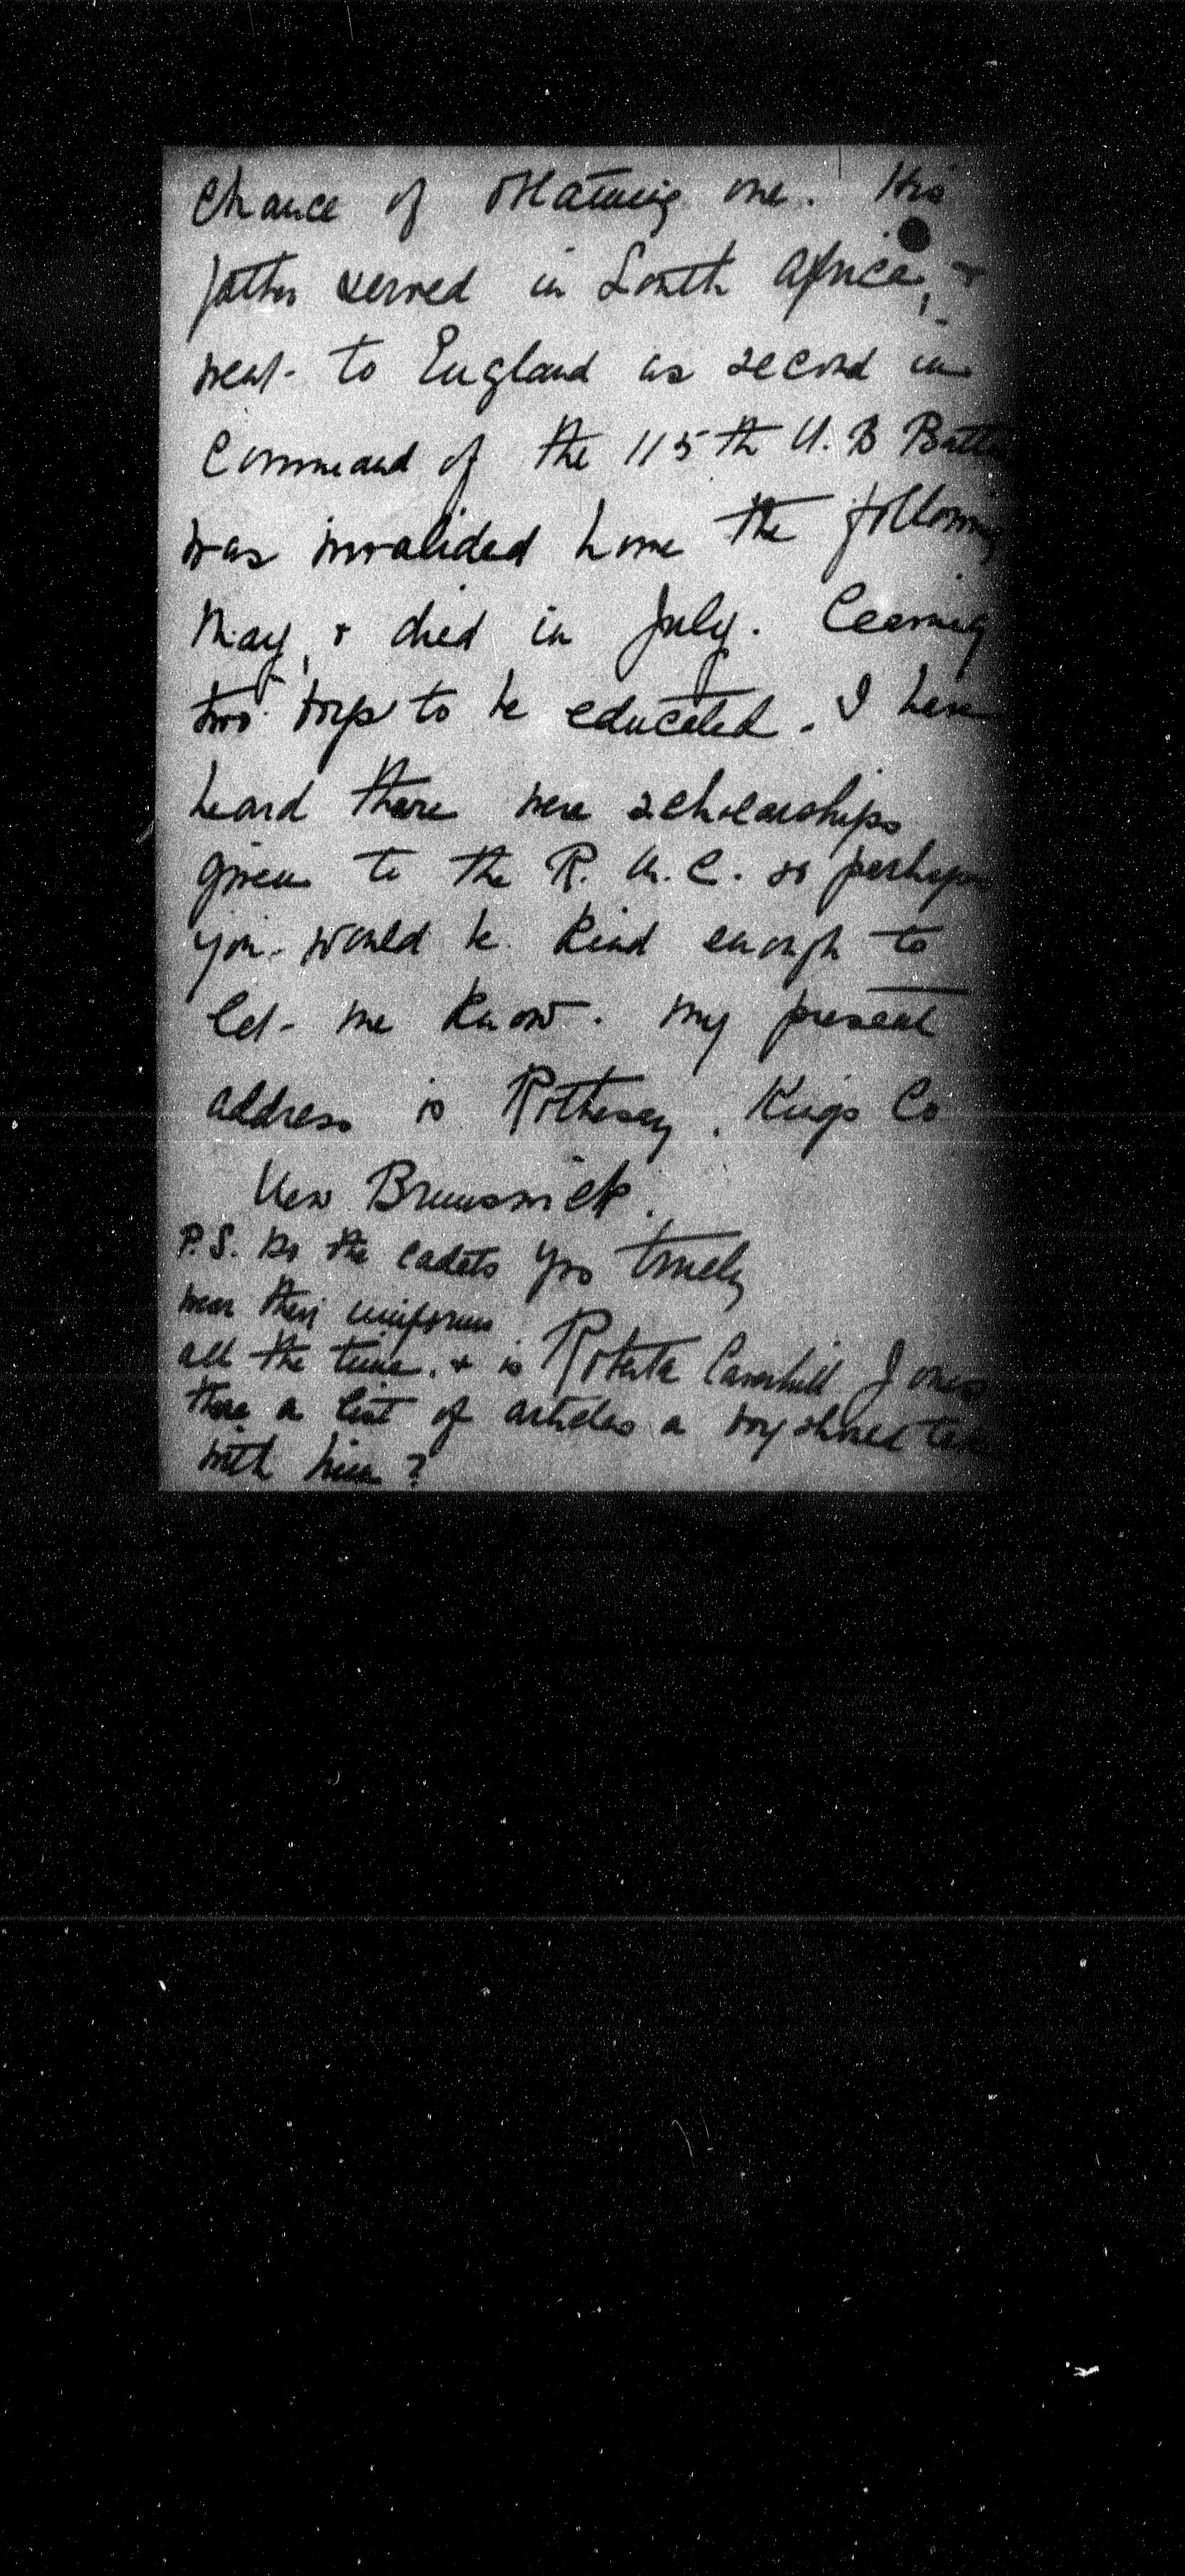 chance of obtaining one. His
father served in South Africa, &
went to England as second in
command of the 115th N. B Batt
was invalided home the following
May, & died in July. Leaving
two boys to be educated. I have
heard there were scholarships
given to the R. M. C. so perhaps
you would be kind enough to
let me know. My present
address is Rothesay, Kings Co
New Brunswick.
Yrs truly
Roberta Caverhill Jones
P.S. Do the cadets
wear their uniforms
all the time. & is
there a list of articles a boy should take
with him?